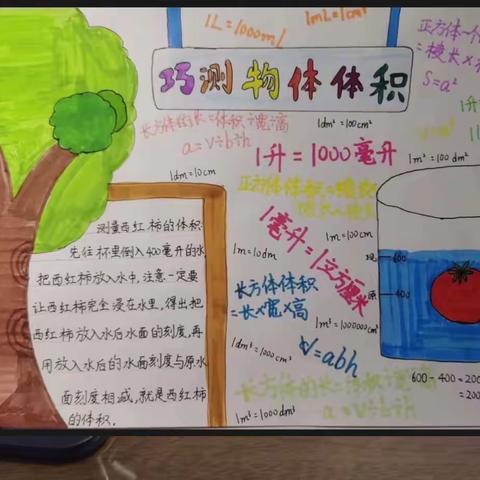 1L=1000mL
1mL=1cm³
巧测物体体积
正方体一个
=棱长×
S=a²
长方体的长=体积÷宽÷高
a=V÷b÷h
1dm²=100cm²
1升=1000毫升
1m²=100dm²
1dm=10cm
1毫升=1立方厘米
1m=100cm
1m=10dm
长方体体积
=长×宽×高
1m³=1000000cm³
V=abh
1dm³=1000cm³
1m³=1000dm³
长方体的长=体积÷宽
a=V÷b÷h
测量西红柿的体积:
先往杯里倒入400毫升的水,
把西红柿放入水中,注意一定要
让西红柿完全浸在水里,得出把
西红柿放入水后水面的刻度,再
用放入水后的水面刻度与原水
面刻度相减,就是西红柿
的体积.
现 600
原 400
600-400=200
=200